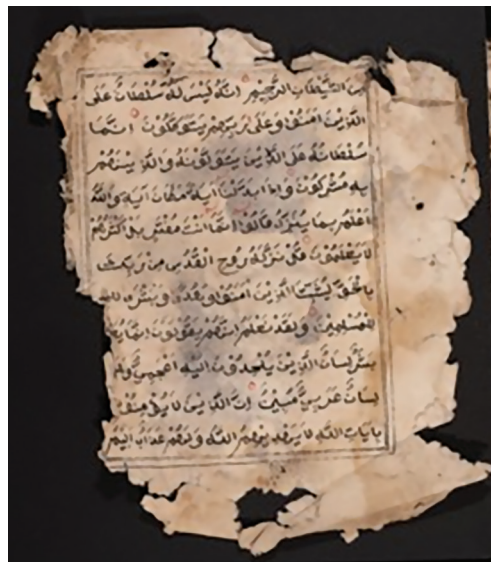 من الشيطان الرجيم انه ليس له سلطان على
الذين امنوا وعلى ربهم يتوكلون انما
سلطانه على الذين يتولونه والذين هم
به مشركون واذا بدلنا اية مكان اية والله
اعلم بما ينزل قالوا انما انت مفتر بل اكثرهم
لا يعلمون قل نزله روح القدس من ربك
بالحق ليثبت الذين امنوا وهدى وبشرى
للمسلمين ولقد نعلم انهم يقولون انما
بشر لسان الذي يلحدون اليه اعجمي
لسان عربي مبين ان الذين لا يؤمنون
بايات الله لا يهديهم الله ولهم عذاب اليم